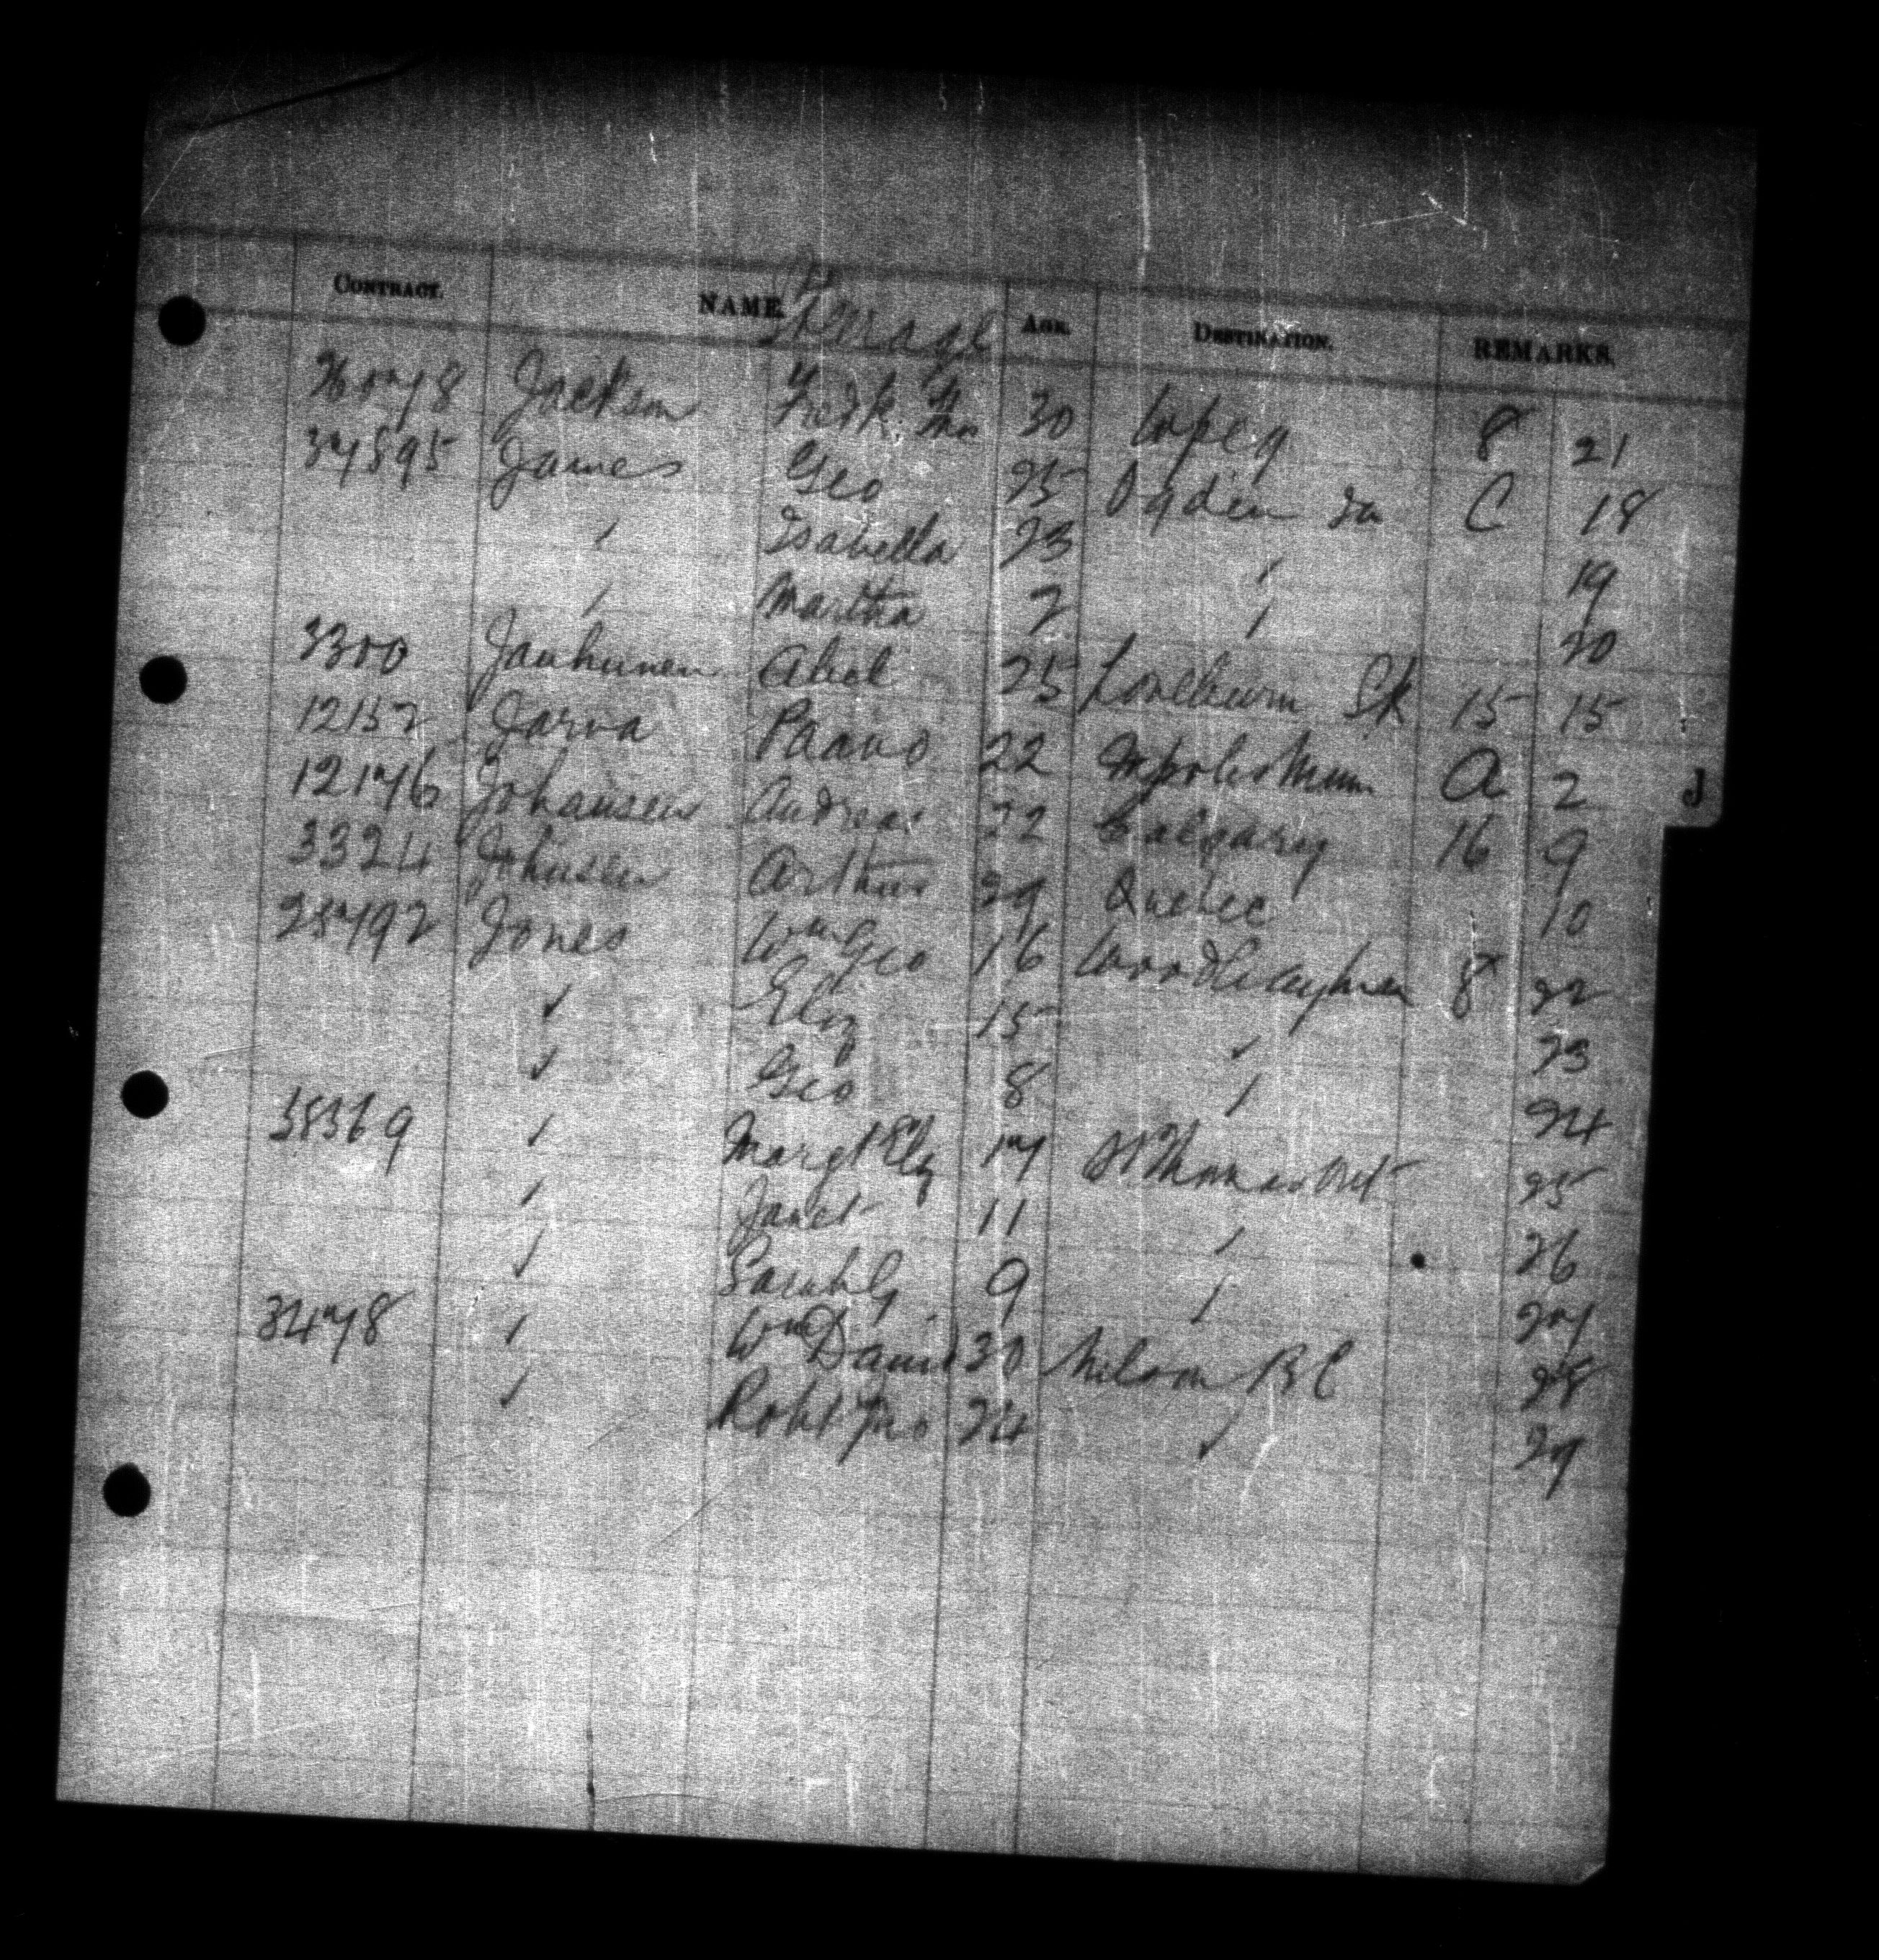 CONTRACT. NAME. AGE. DESTINATION. REMARKS.
Steerage
26078 Jackson Fredk. Wm 30 Wpeg 8 21
37595 James Geo 25 Ogden Ia C 18
" Isabella 23 " 19
" Martha 2 " 20
3300 Jauhunen Abel 25 Loreburn Sk 15 15
12152 Jarva Paavo 22 Mpolis Minn A 2
J
12176 Johansen Andreas 22 Calgary 16 9
3324 Johnsen Arthur 29 Quebec 10
25792 Jones Wm Geo 16 8 22
" Eliz 15 " 23
" Geo 8 " 24
35369 " Margt Eliz 17 St Thomas Ont 25
" Janet 11 " 26
" Sarah 9 " 27
3478 " Wm Daniel 30 Nelson BC 28
" Robt Jno 24 " 29